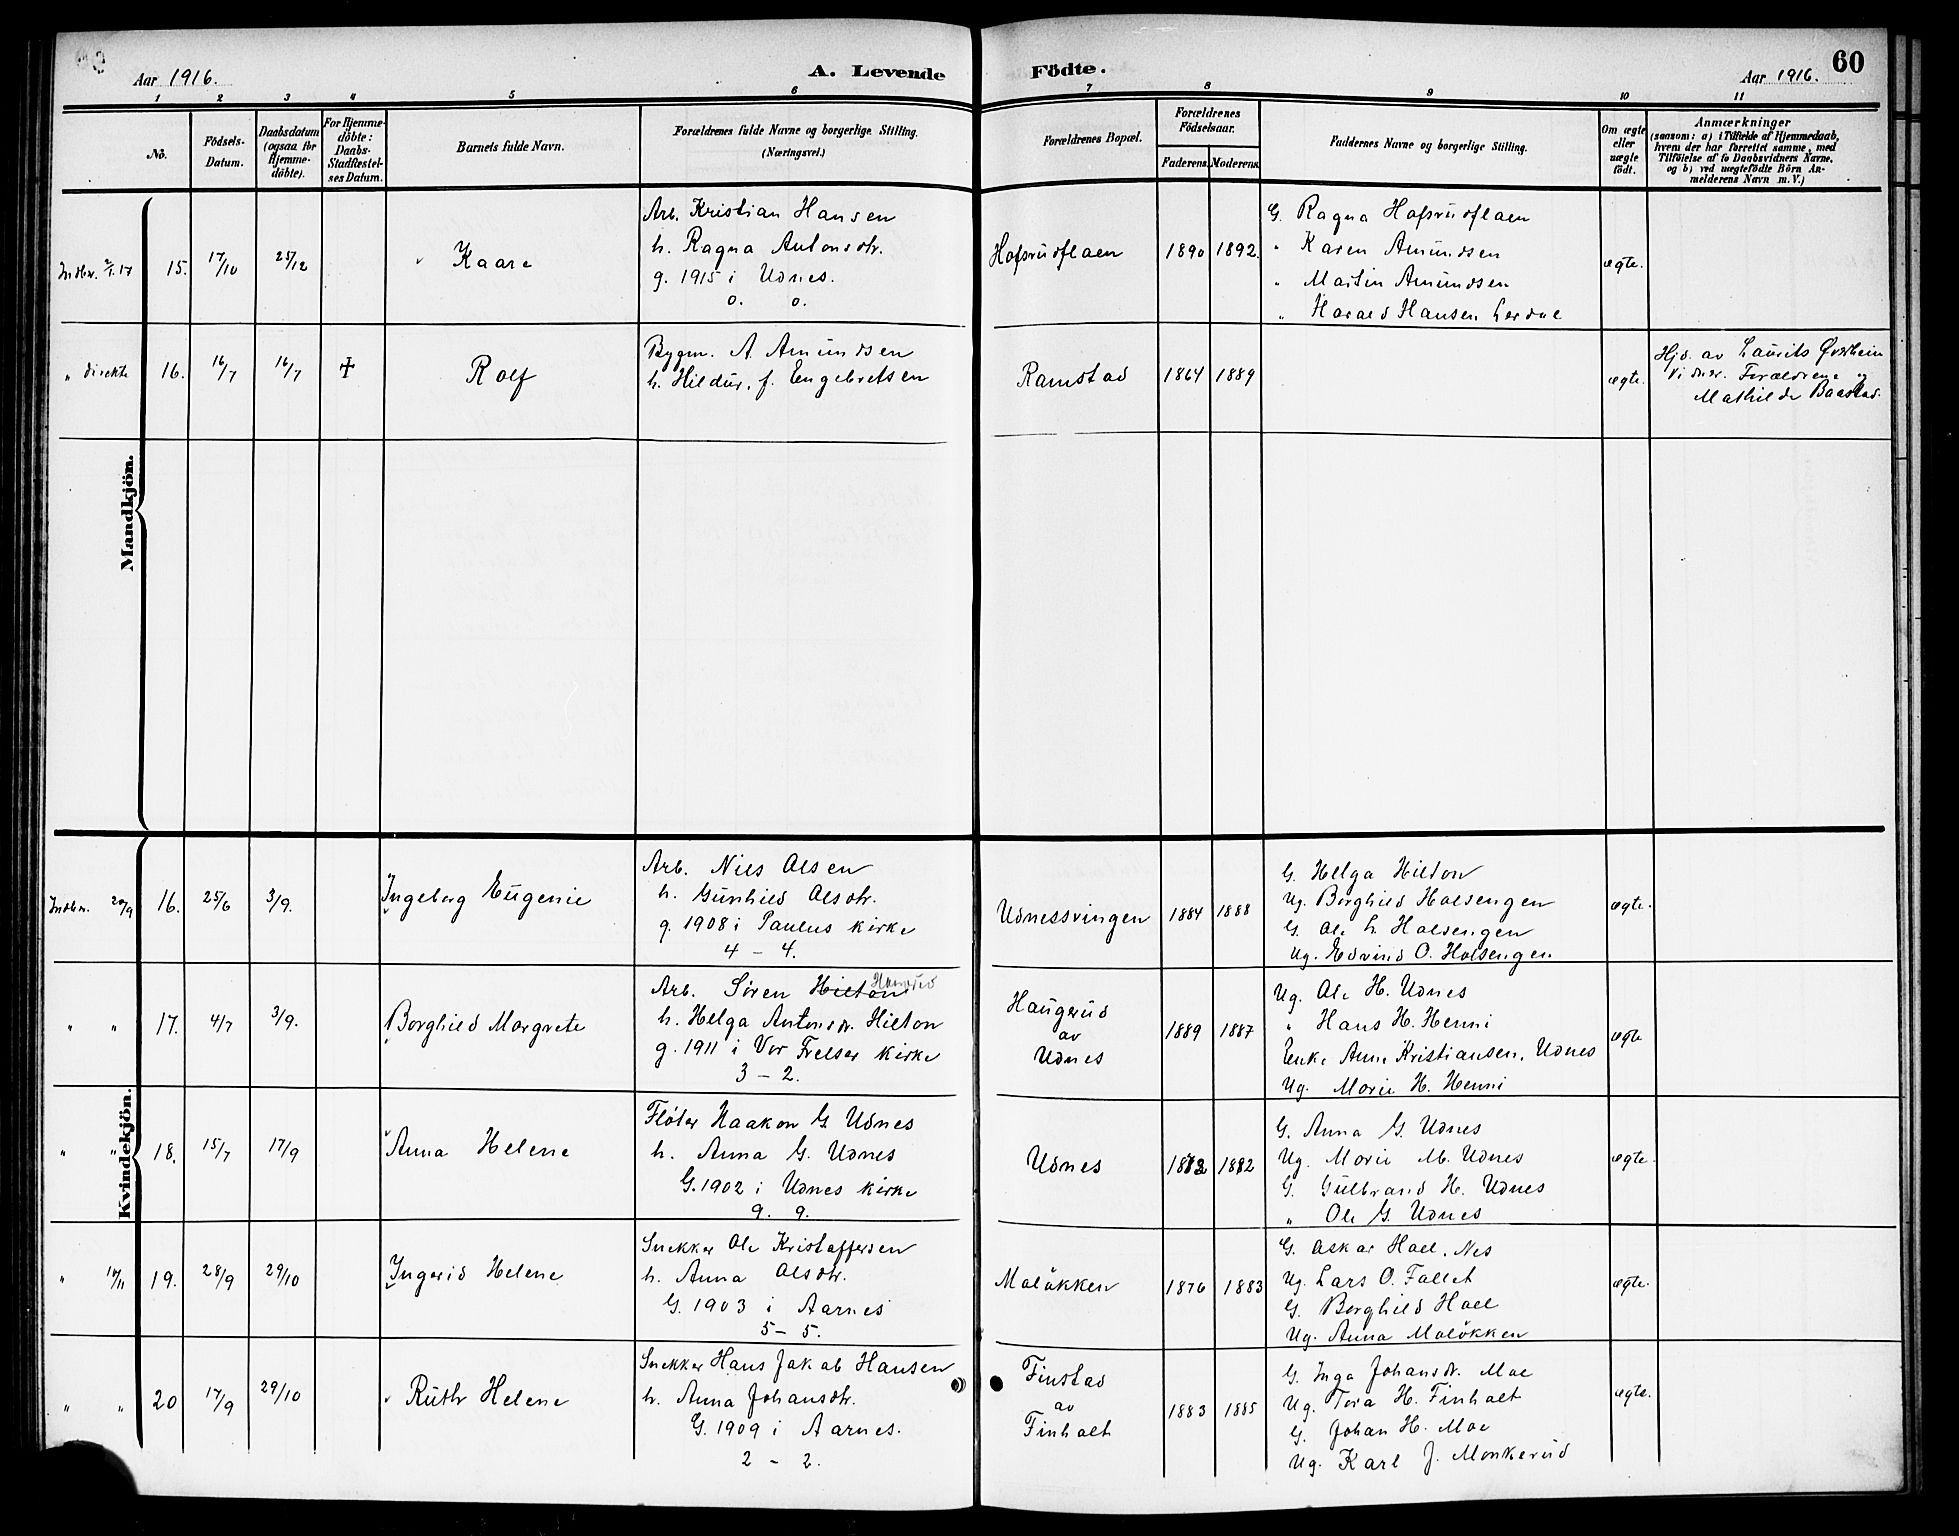 Aar 1916.
A. Levende Födte.
Aar 1916.
60
1 2 3 4 5 6 7 8 9 10 11
No.
Födsels-Datum.
Daabsdatum (ogsaa for Hjemme-döbte).
For Hjemme-döbte: Daabs-Stadfæstel-ses Datum.
Barnets fulde Navn.
Forældrenes fulde Navne og borgerlige Stilling.
(Næringsvei.)
Forældrenes Bopæl.
Forældrenes Födselsaar.
Faderens. Moderens.
Faddernes Navne og borgerlige Stilling.
Om ægte eller uægte födt.
Anmærkninger
(saasom: a) i Tilfælde af Hjemmedaab,
hvem der har forrettet samme, med
Tilföielse af to Daabsvidners Navne,
og b) ved uegtefödte Börn An-
melderens Navn m. V.)
Mandkjön.
Indbr. 2/1.17 15. 17/10 25/12 Kaare
Arb. Kristian Hansen
h. Ragna Antonsdtr.
g. 1915 i Udnes.
0. 0.
Hofsrudflaen 1890 1892.
G. Ragna Hofsrudflaen
" Karen Amundsen
" Martin Amundsen
" Harald Hansen Lerdal
ægte.
" direkte 16. 16/7 16/7 Rolf
Bygm. A. Amundsen
h. Hildur, f. Engebretsen
Ramstad 1864 1889
ægte.
Hjd. av Laurits Øverheim
Vidner. Forældrene og
Mathilde Baastad.
Kvindekjön.
Indbr. 29/9 16. 25/6 3/9. Ingeborg Eugenie
Arb. Nils Olsen
h. Gunhild Olsdtr.
g. 1908 i Paulus kirke
4 - 4.
Udnessvingen 1884 1888
G. Helga Hilton
Ug. Borghild Holsengen
G. Ole L. Holsengen
Ug. Edvind O. Holsengen
ægte.
" " 17. 4/7 3/9. Borghild Margrete
Arb. Søren Hilton
h. Helga Antonsdr. Hilton
g. 1911 i Vor Frelser kirke
3 - 2.
Haugerud
av
Udnes
1889 1887
Ug. Ole H. Udnes
" Hans H. Henni
Enke Anne Kristiansen, Udnes
Ug. Marie H. Henni
ægte
" " 18. 15/7 17/9 Anna Helene
Fløter Haakon G. Udnes
h. Anna G. Udnes
G. 1902 i Udnes kirke
9. 9.
Udnes 1882
G. Anna G. Udnes
Ug. Marie M. Udnes
G. Gulbrand H. Udnes
" Ole G. Udnes
ægte.
" 14/11 19. 28/9 29/10 Ingerid Helene
Snekker Ole Kristoffersen
h. Anna Olsdtr.
G. 1903 i Aarnes
5 - 5.
Moløkken 1876 1883
G. Oskar Hoel, Nes
Ug. Lars O. Fallet
G. Borghild Hoel
Ug. Anna Moløkken
ægte.
" " 20 17/9 29/10 Ruth Helene
Snekker Hans Jakob Hansen
h. Anna Johansdtr.
G. 1909 i Aarnes.
2 - 2.
Finstad
av
Finholt
1883 1885
G. Inga Johansdr. Moe
Ug. Tora H. Finholt
G. Johan H. Moe
Ug. Karl J. Monkerud
ægte.